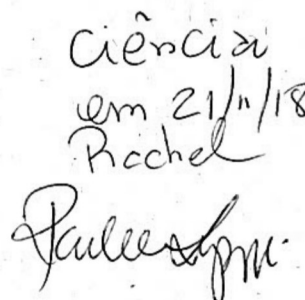 Ciência
em 21/11/18
Rachel